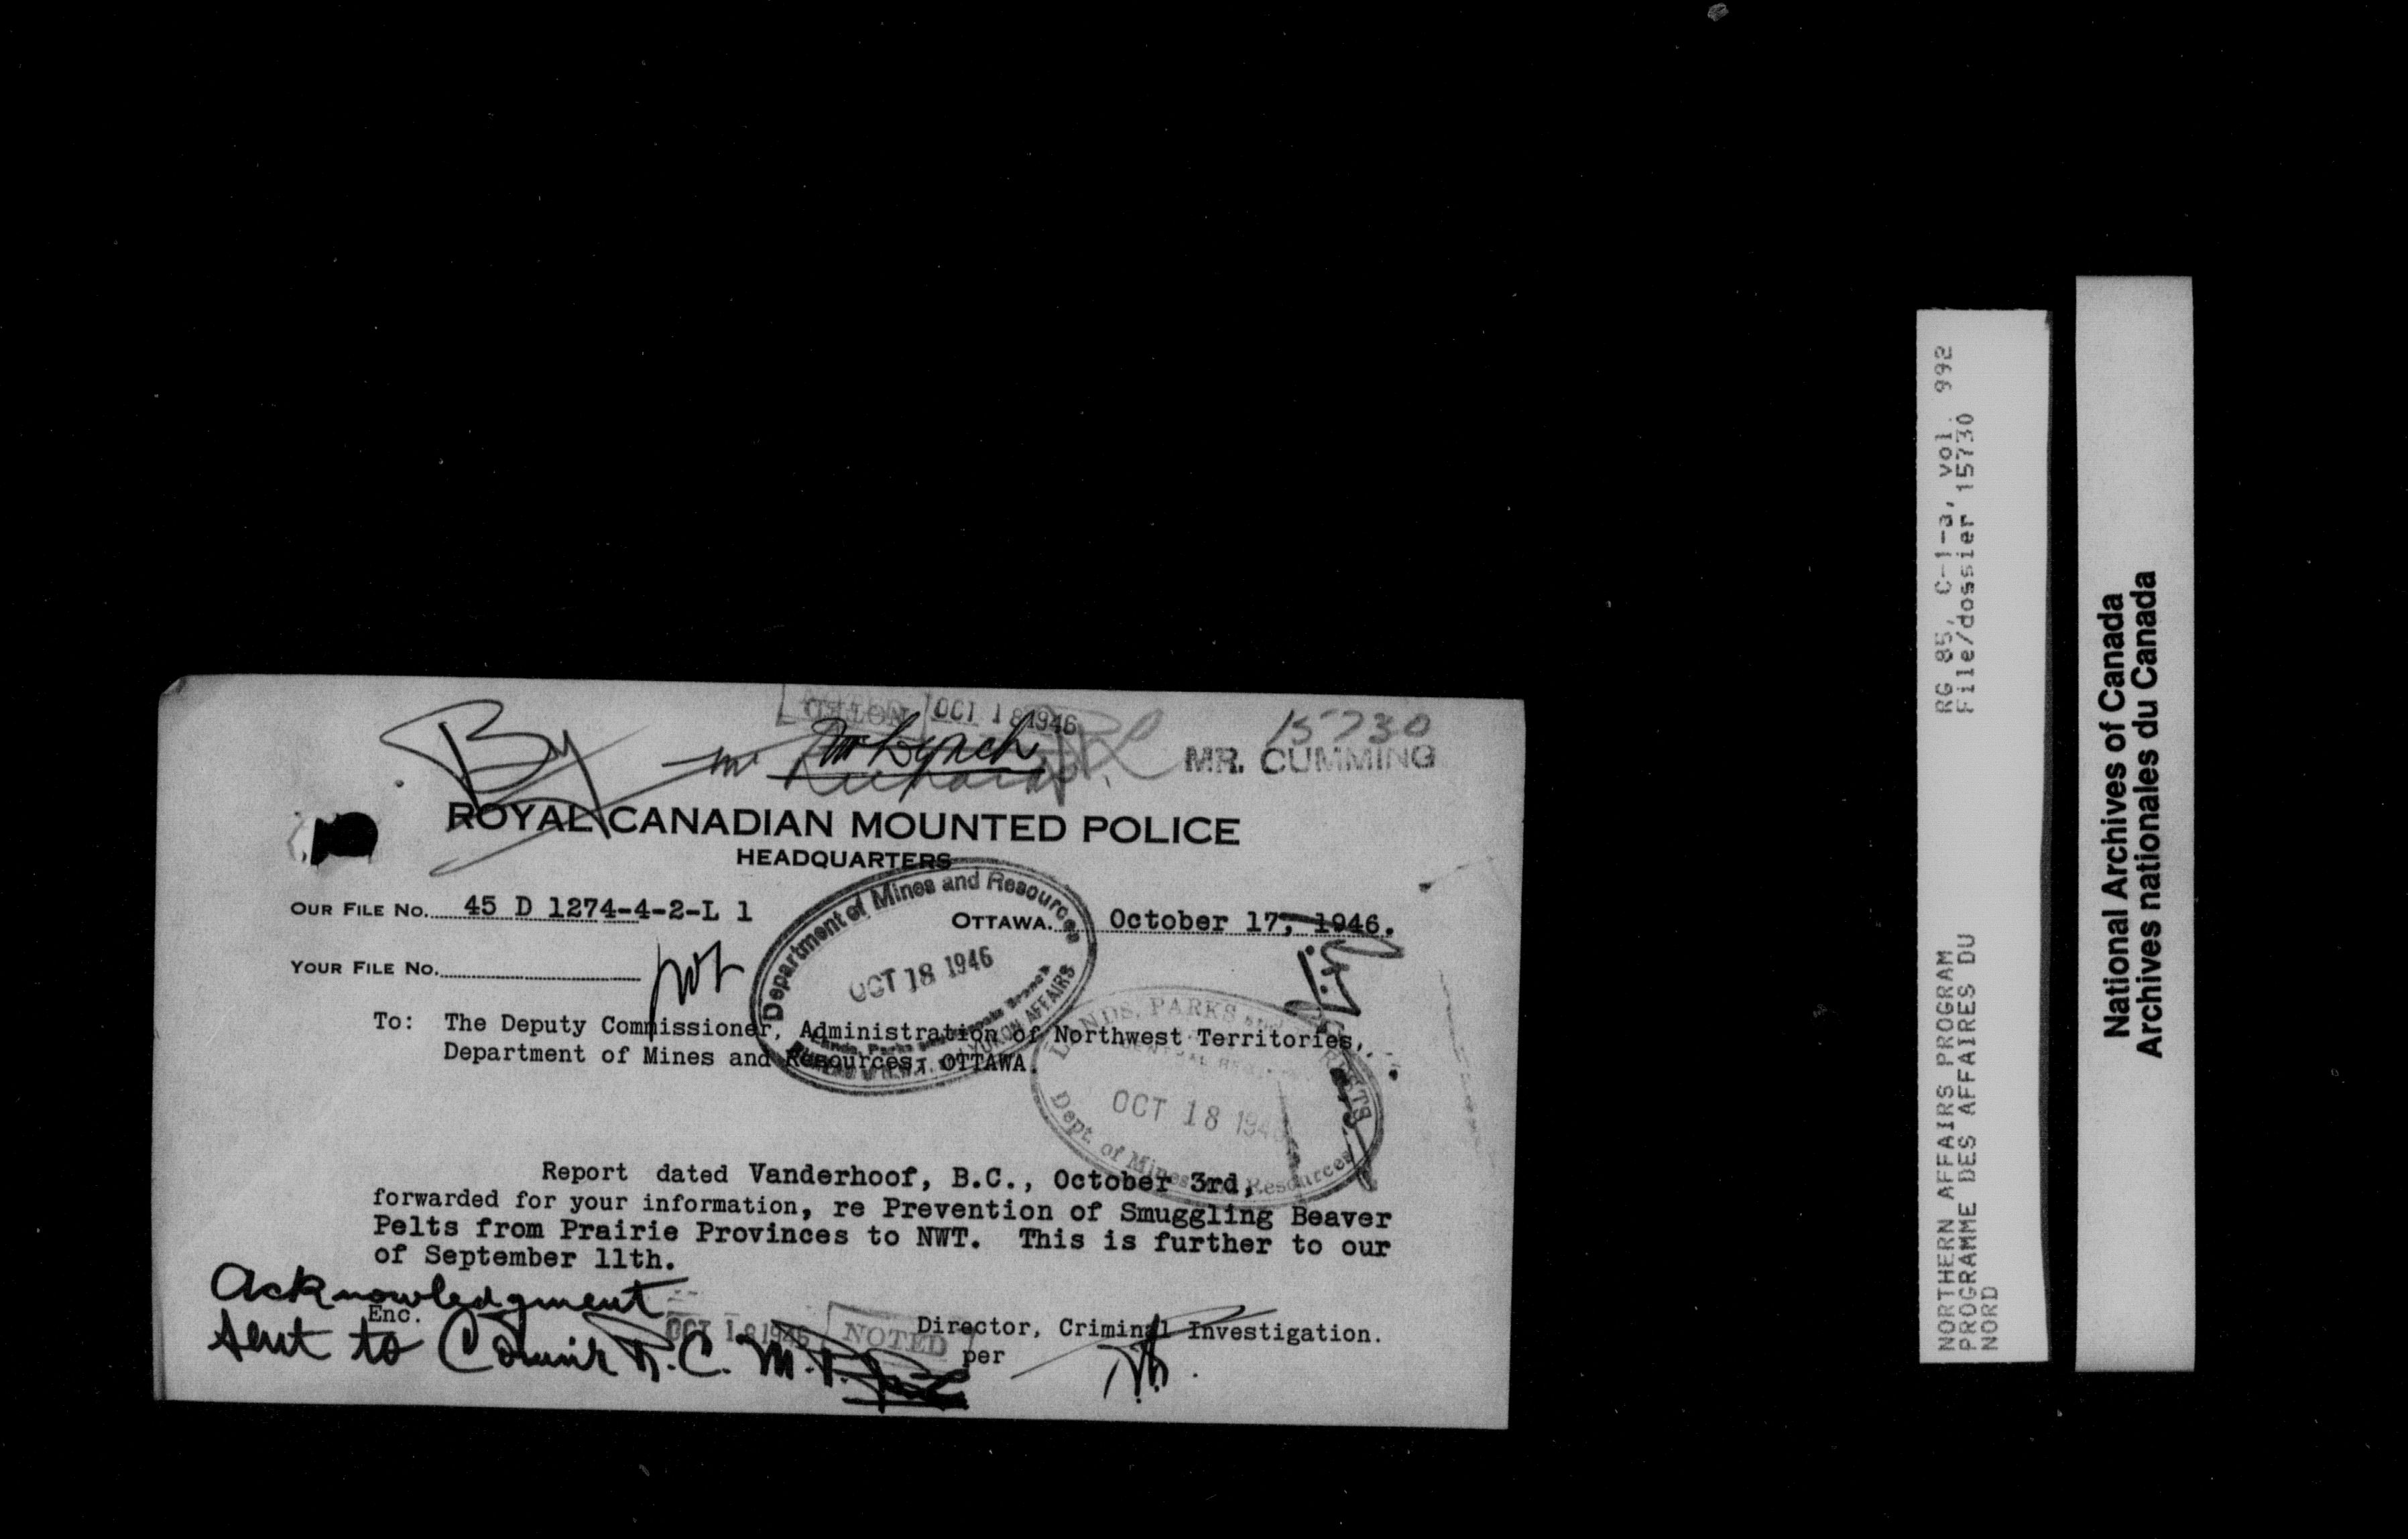 NOTED OCT 18 1946
By
Mr Lynch
15730
MR. CUMMING
ROYAL CANADIAN MOUNTED POLICE
HEADQUARTERS
OUR FILE NO. 45 D 1274-4-2-L 1
OTTAWA. October 17, 1946.
YOUR FILE NO.
Department of Mines and Resources
OCT 18 1946
YUKON AFFAIRS
To: The Deputy Commissioner, Administration of Northwest Territories,
Department of Mines and Resources, OTTAWA.
LANDS, PARKS
OCT 18 1946
Dept. of Mines and Resources
Report dated Vanderhoof, B.C., October 3rd,
forwarded for your information, re Prevention of Smuggling Beaver
Pelts from Prairie Provinces to NWT. This is further to our
of September 11th.
Acknowledgment
Enc.
sent to Comm'r R.C.M.P.
OCT 18 1946 NOTED
Director, Criminal Investigation.
per
RG 85, C-1-a, vol. 992
File/dossier 15730
NORTHERN AFFAIRS PROGRAM
PROGRAMME DES AFFAIRES DU
NORD
National Archives of Canada
Archives nationales du Canada